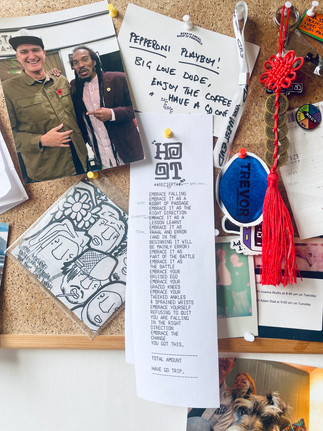 PEPPERONI PLAYBOY!
BIG LOVE DUDE,
ENJOY THE COFFEE
& HAVE A GD ONE
HOOT
EMBRACE FALLING
EMBRACE IT AS A
RIGHT OF PASSAGE
EMBRACE IT AS THE
RIGHT DIRECTION
EMBRACE IT AS A
LESSON LEARNT
EMBRACE IT AS
TRAIL AND ERROR
(AND IN THE
BEGINNING IT WILL
BE MAINLY ERROR)
EMBRACE IT AS
PART OF THE BATTLE
EMBRACE IT AS
THE BATTLE
EMBRACE YOUR
BRUISED EGO
EMBRACE YOUR
GRAZED KNEES
EMBRACE YOUR
TWEAKED ANKLES
& SPRAINED WRISTS
EMBRACE YOURSELF
REFUSING TO QUIT
YOU ARE FALLING
IN THE RIGHT
DIRECTION
EMBRACE THE
CHANGE
YOU GOT THIS.
TOTAL AMOUNT
HAVE GD TRIP.
TREVOR